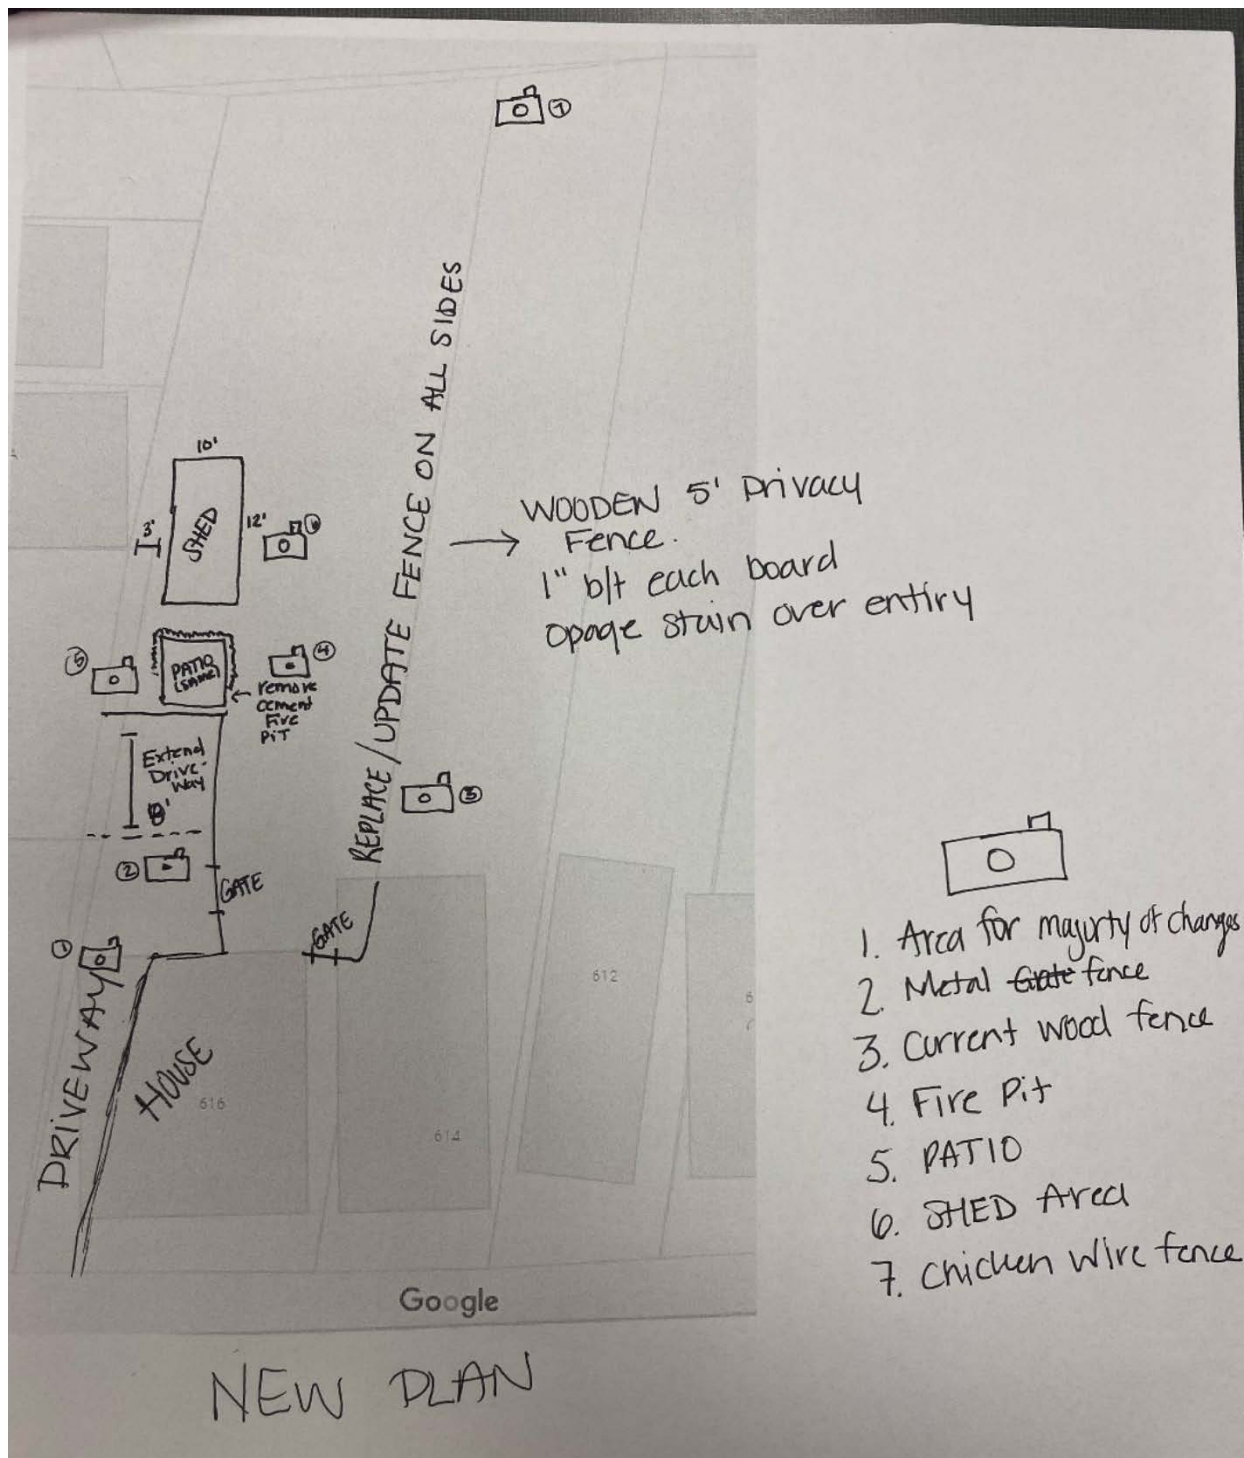 ①
⑦
REPLACE/UPDATE FENCE ON ALL SIDES
10'
SHED
12'
3'
⑥
WOODEN 5' Privacy
Fence.
1" b/t each board
opaqe stain over entiry
⑤
PATIO
(same)
④
remove
cement
Fire
PiT
Extend
Drive
Way
8'
③
②
GATE
GATE
DRIVEWAY
HOUSE
616
614
612
6
1. Area for majurty of changes
2. Metal Gate fence
3. Current wood fence
4. Fire Pit
5. PATIO
6. SHED Area
7. Chicken Wire fence
Google
NEW PLAN